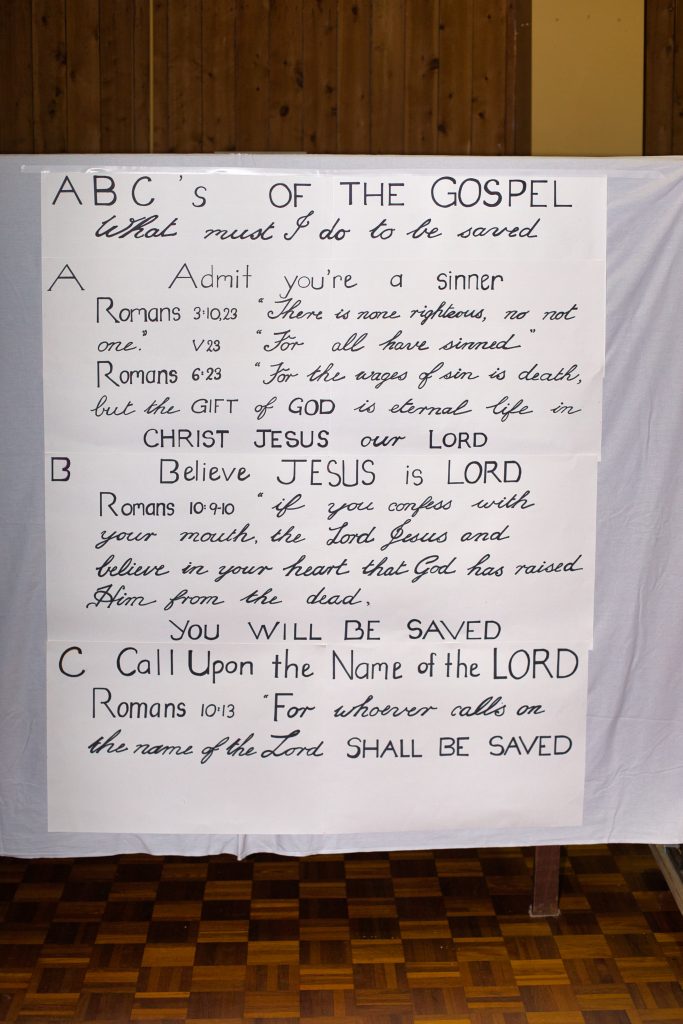 ABC's OF THE GOSPEL
What must I do to be saved
A Admit you're a sinner
Romans 3:10,23 "There is none righteous, no not
one." V23 "For all have sinned"
Romans 6:23 "For the wages of sin is death,
but the GIFT of GOD is eternal life in
CHRIST JESUS our LORD
B Believe JESUS is LORD
Romans 10:9-10 "if you confess with
your mouth, the Lord Jesus and
believe in your heart that God has raised
Him from the dead,
YOU WILL BE SAVED
C Call Upon the Name of the LORD
Romans 10:13 "For whoever calls on
the name of the Lord SHALL BE SAVED